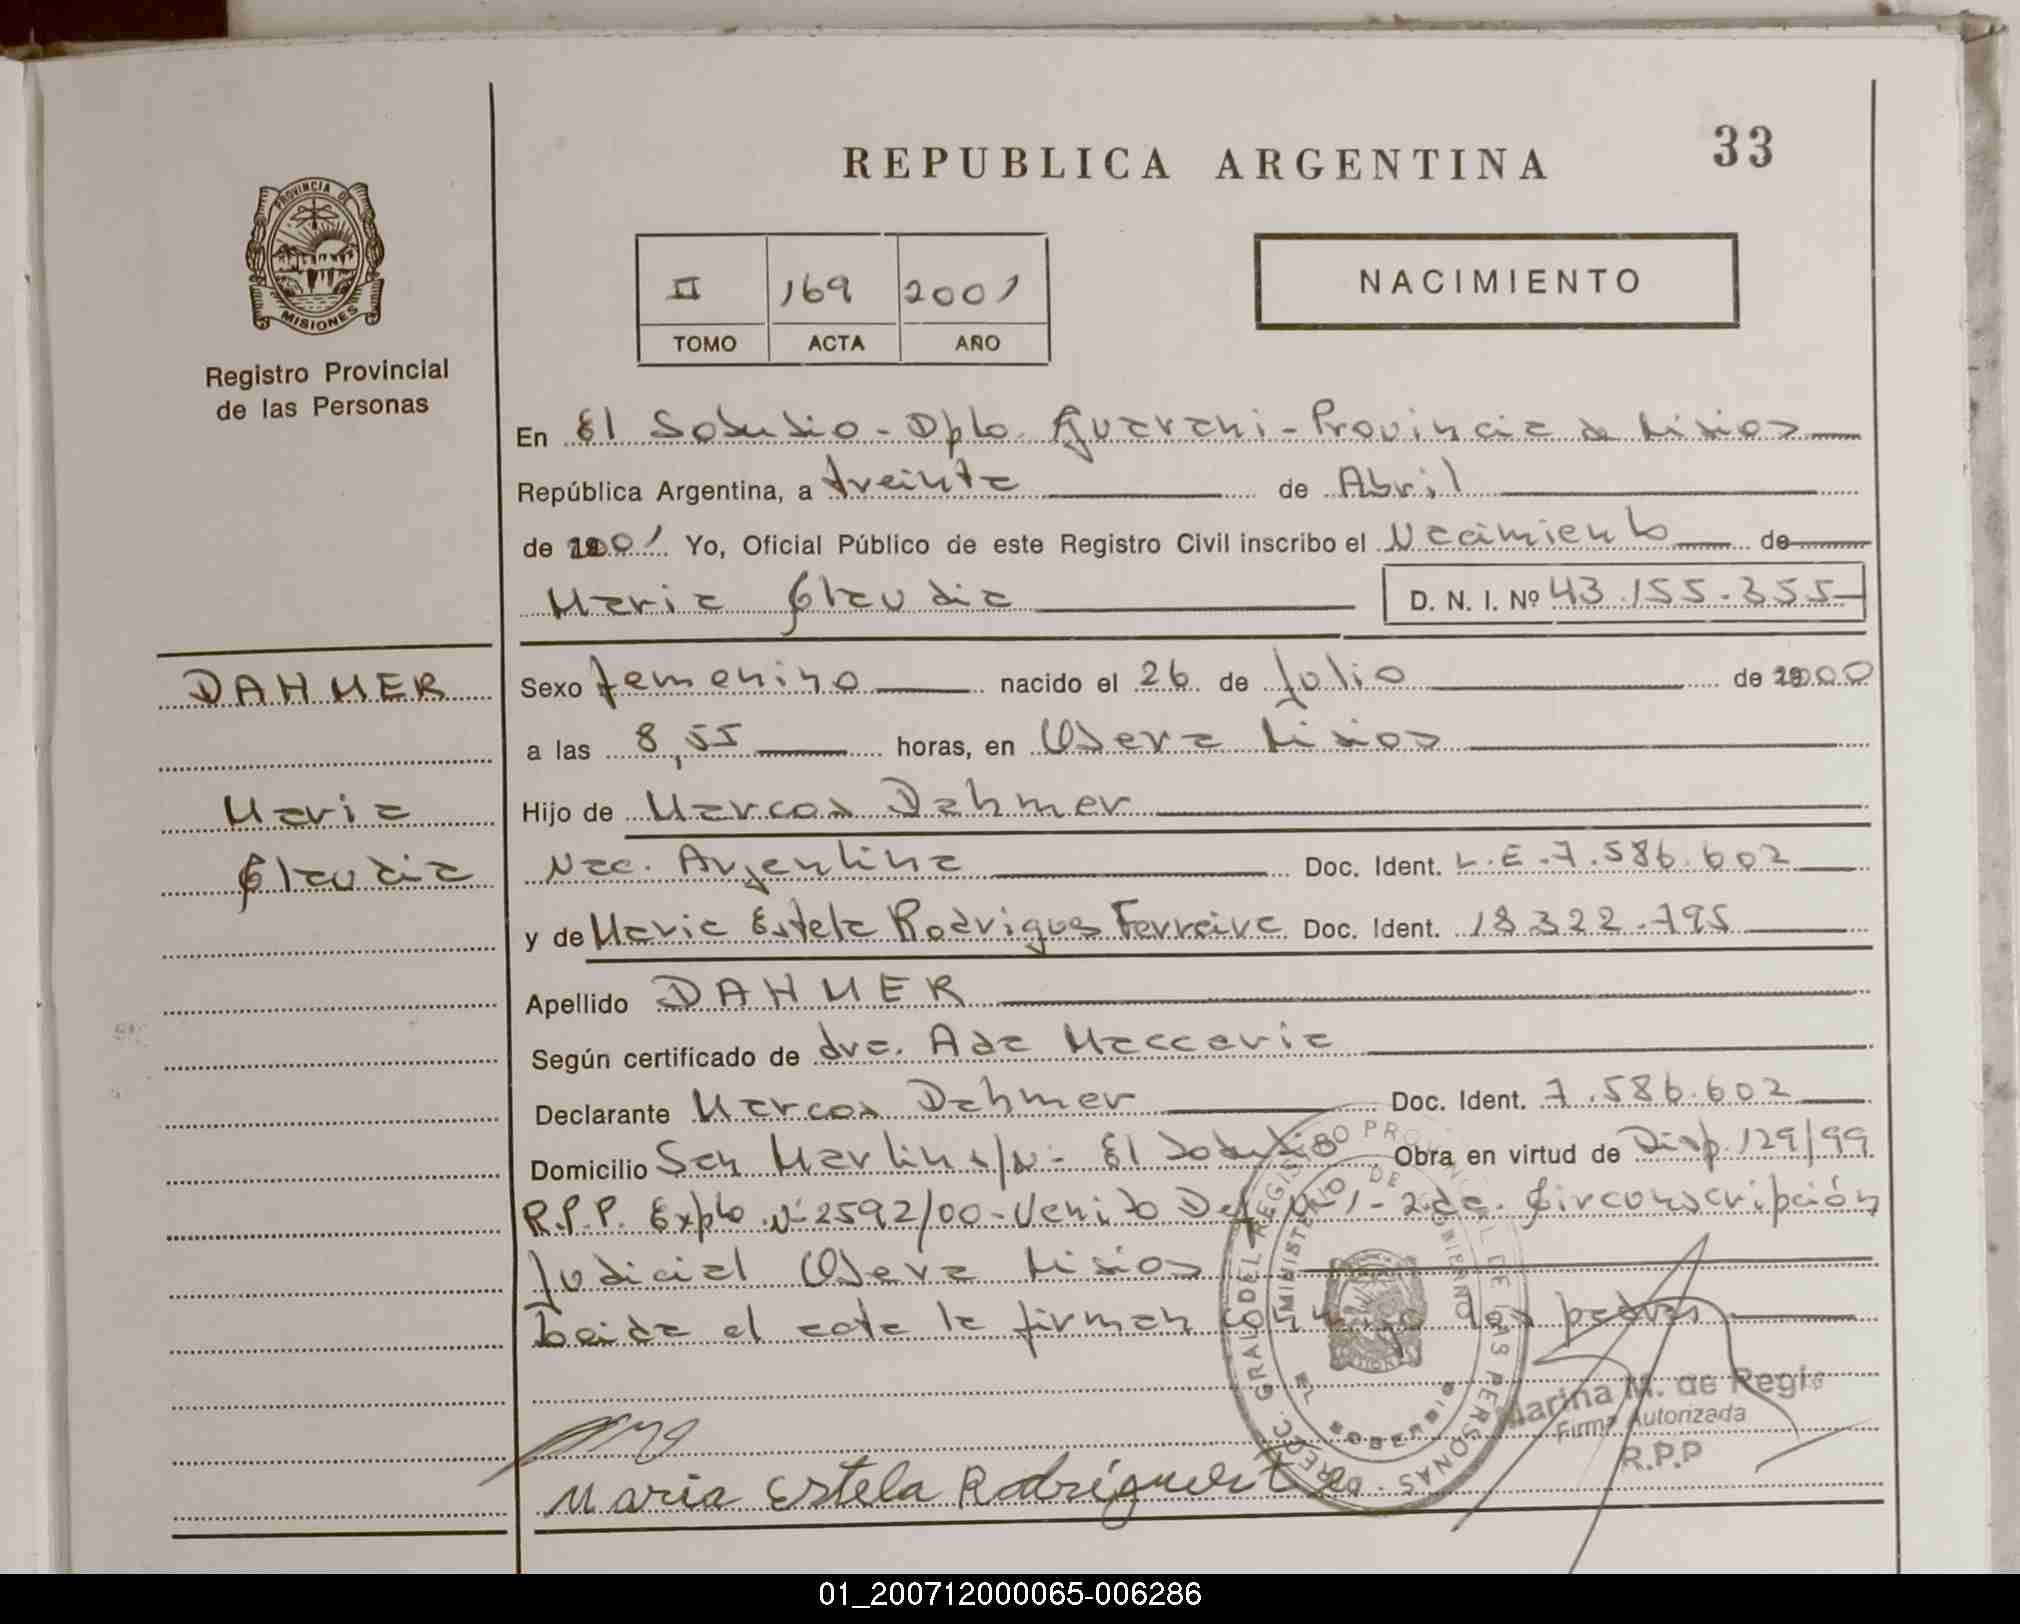 33
REPUBLICA ARGENTINA
PROVINCIA DE
MISIONES
Registro Provincial
de las Personas
II 169 2001
TOMO ACTA AÑO
NACIMIENTO
En El Soberbio - Dpto. Guarani - Provincia de Misiones
República Argentina, a treinta de Abril
de 2001 Yo, Oficial Público de este Registro Civil inscribo el Nacimiento de
Maria Claudia D. N. I. Nº 43.155.355
DAHMER
Maria
Claudia
Sexo femenino nacido el 26 de Julio de 2000
a las 8,55 horas, en Obera Misiones
Hijo de Marcos Dahmer
Nac. Argentina Doc. Ident. L.E. 7.586.602
y de Maria Estela Rodrigues Ferreira Doc. Ident. 18.322.795
Apellido DAHMER
Según certificado de dra. Ada Maccaria
Declarante Marcos Dahmer Doc. Ident. 7.586.602
Domicilio San Martin s/n - El Soberbio Obra en virtud de Disp. 129/99
R.P.P. Expte Nº 2592/00 - Venido Def. Nº 1 - 2da. Circonscripción
Judicial Obera Misiones
Leida el acta la firman los padres
DIREC. GRAL DEL REGISTRO PROVINCIAL DE LAS PERSONAS
MINISTERIO DE GOBIERNO
EL SOBERBIO
Marina M. de Regis
Firma Autorizada
R.P.P
Maria Estela Rodríguez
01_200712000065-006286